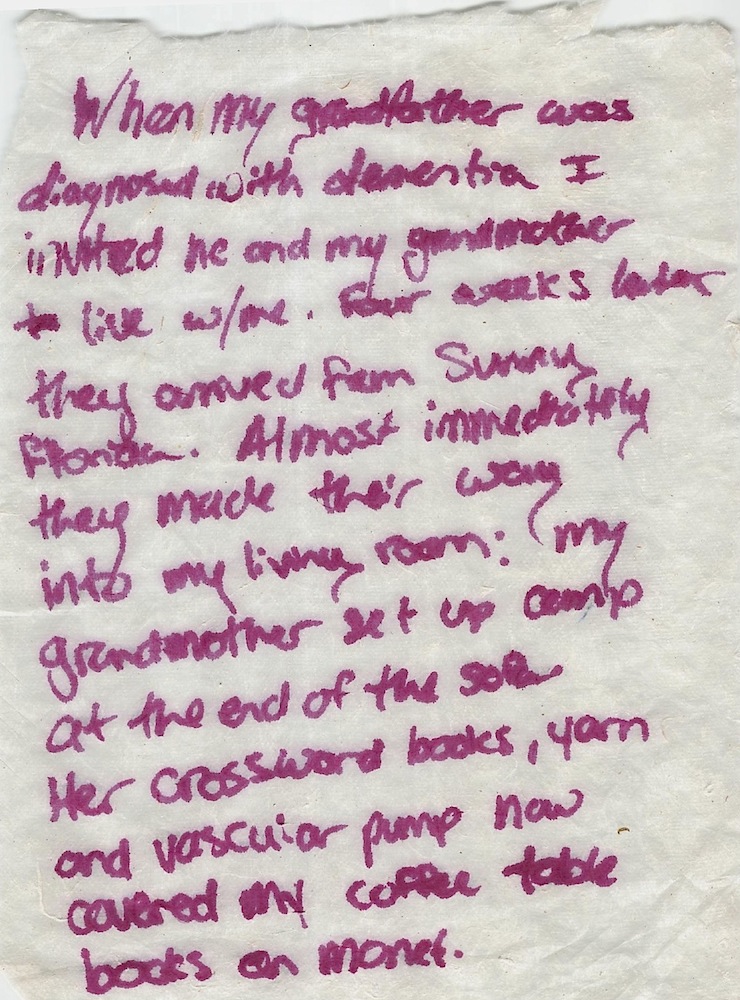 When my grandfather was
diagnosed with dementia I
invited he and my grandmother
to live w/me. Four weeks later
they arrived from Sunny
Florida. Almost immediately
they made their way
into my living room: my
grandmother set up camp
at the end of the sofa
Her crossword books, yarn
and vascular pump now
covered my coffee table
books on monet.